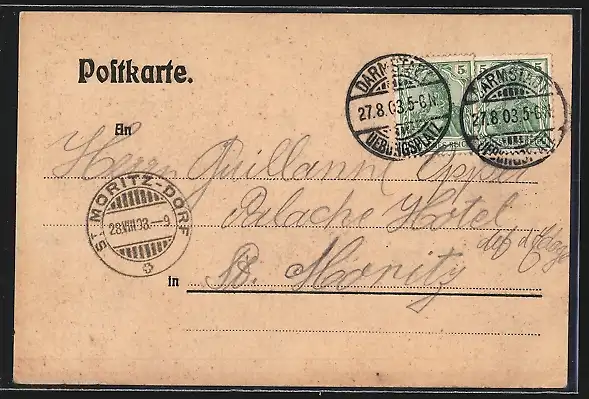 Postkarte.
5 5
DARMSTADT
27.8.03.5-6N.
ÜBUNGSPLATZ
DARMSTADT
27.8.03.5-6N.
ÜBUNGSPLATZ
An
Herrn Guillaume
Palache Hotel
ST. MORITZ-DORF
28.VIII.03.–9
in St. Moritz